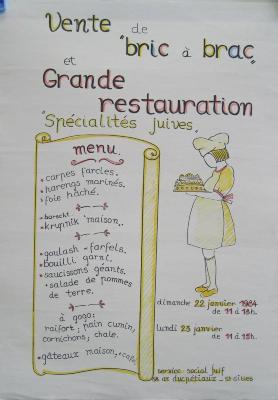 Vente de
"bric à brac"
et
Grande
restauration
"Spécialités juives"
menu.
• carpes farcies.
• harengs marinés.
• foie haché.
• borscht
• krupnik "maison"..
• goulash - farfels.
• bouilli garni.
• saucissons géants.
• salade de pommes
de terre.
à gogo:
raifort; pain cumin,
cornichons, chale.
• gâteaux maison, • café
dimanche 22 janvier 1984
de 11 à 18h.
lundi 23 janvier
de 11 à 15h.
service social juif
av. ducpétiaux - st Gilles